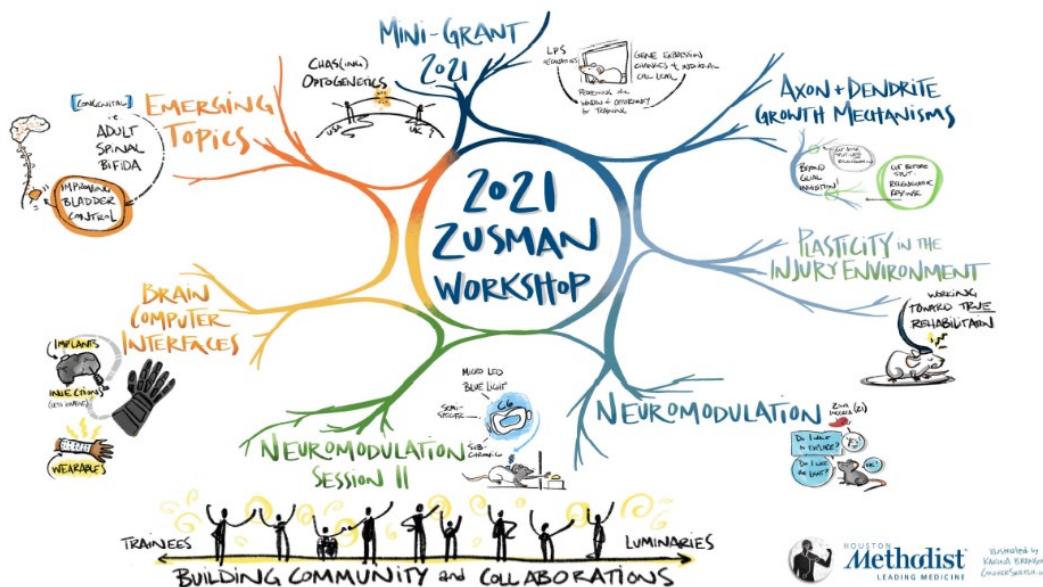 2021
ZUSMAN
WORKSHOP
MINI-GRANT
2021
CHAS(ING)
OPTOGENETICS
USA
UK
LPS
GENE EXPRESSION
CHANGES
INDIVIDUAL
CELL LEVEL
WINDOW OF OPPORTUNITY
for TRAINING
AXON + DENDRITE
GROWTH MECHANISMS
BEYOND
GLIAL
INHIBITION!
CUT BEFORE
SPLIT:
REGENERATIVE
RESPONSE
PLASTICITY IN THE
INJURY ENVIRONMENT
WORKING
TOWARD TRUE
REHABILITATION
NEUROMODULATION
ZONA
INCERTA (ZI)
Do I WANT
to EXPLORE?
YES!
Do I LIKE
the LIGHT?
OK!
NEUROMODULATION
SESSION II
MICRO LED
BLUE LIGHT
C6
SEMI-
SPECIFIC
SUB-
CHRONIC
BRAIN
COMPUTER
INTERFACES
IMPLANTS
INJECTIONS
WEARABLES
EMERGING
TOPICS
[CONGENITAL]
i.e
ADULT
SPINAL
BIFIDA
IMPROVING
BLADDER
CONTROL
TRAINEES
LUMINARIES
BUILDING COMMUNITY and COLLABORATIONS
HOUSTON
Methodist
LEADING MEDICINE
Illustrated by
KARINA BRANSON